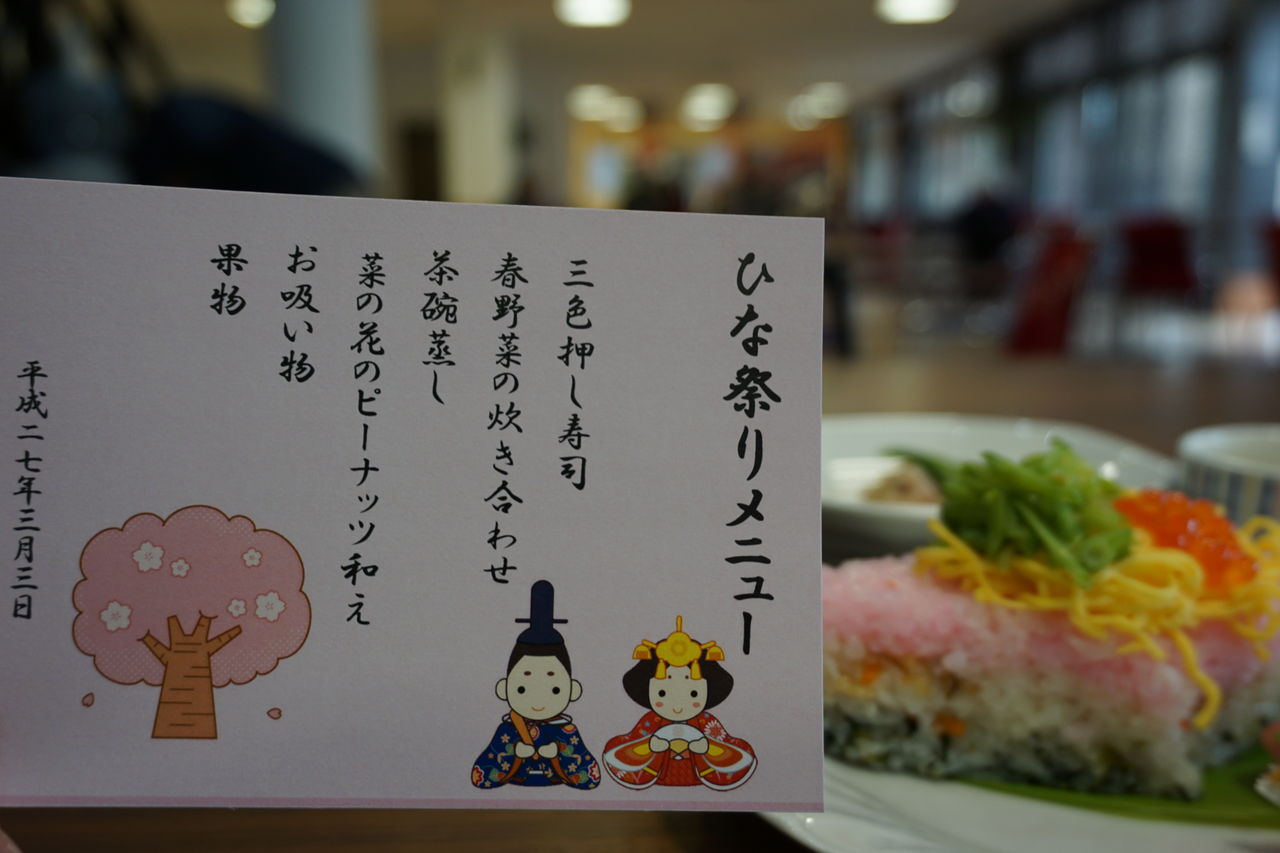 ひな祭りメニュー
三色押し寿司
春野菜の炊き合わせ
茶碗蒸し
菜の花のピーナッツ和え
お吸い物
果物
平成二七年三月三日